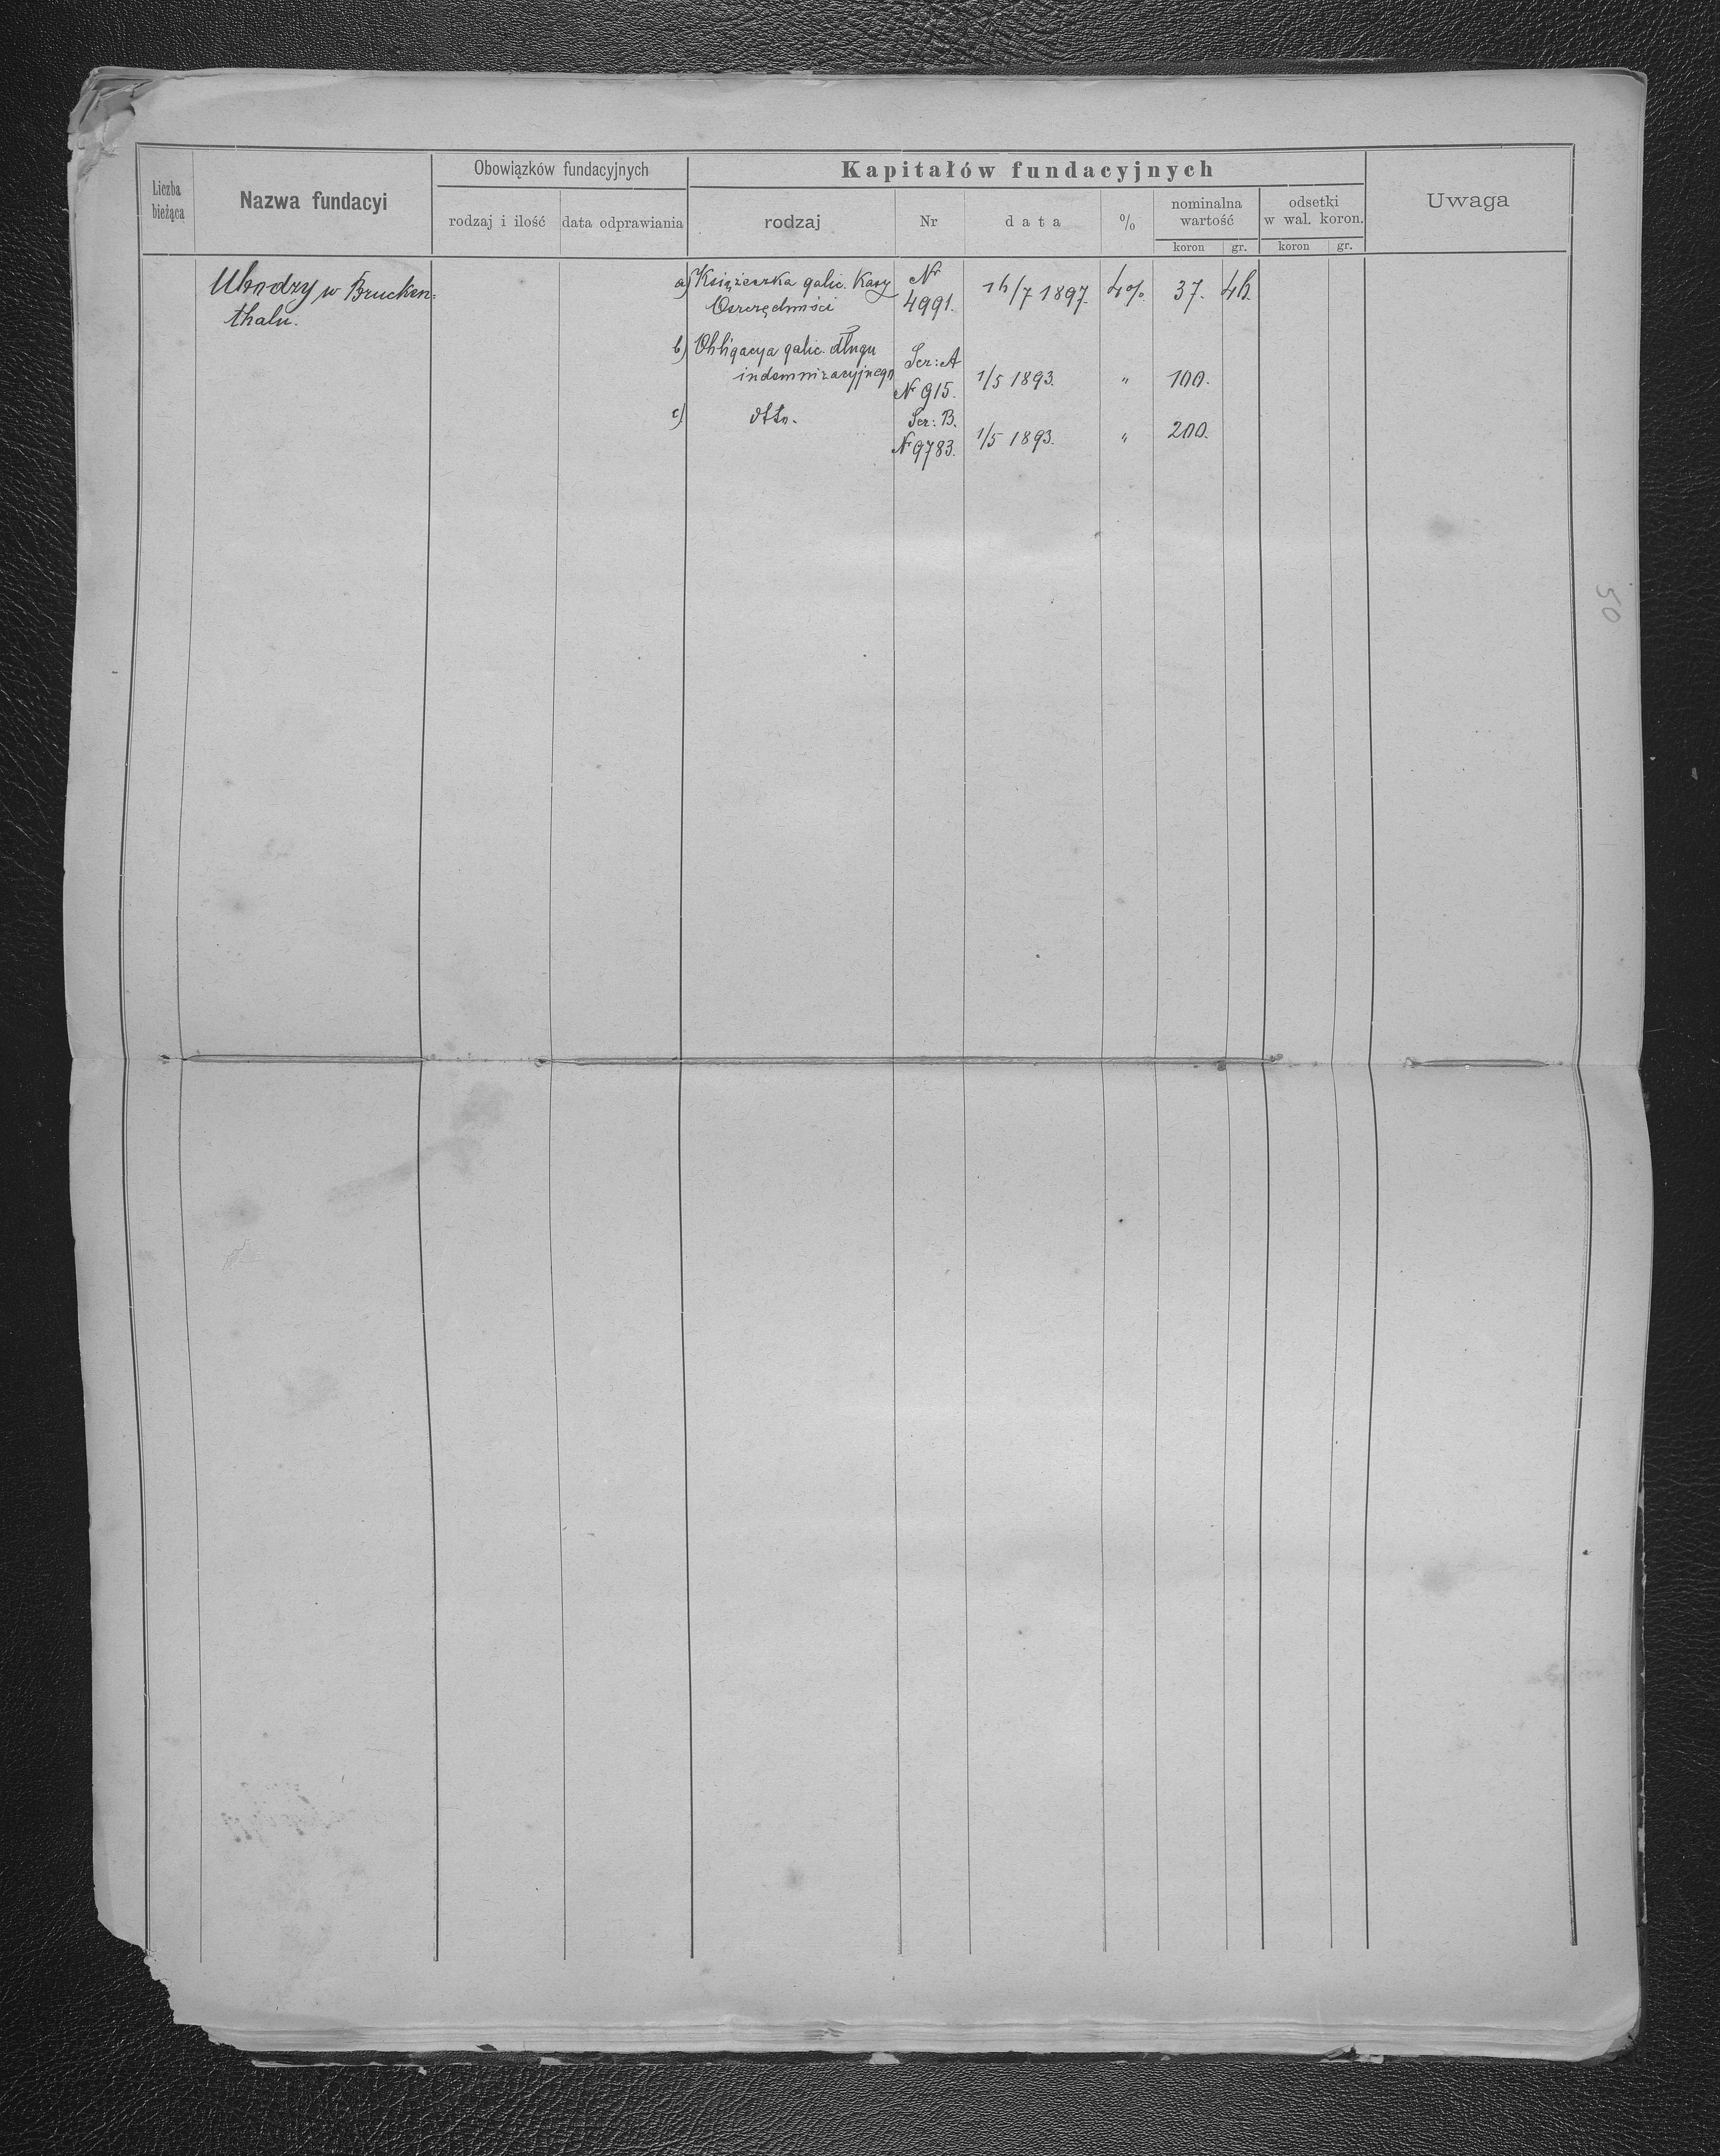 Liczba bieżąca
Nazwa fundacyi
Obowiązków fundacyjnych
rodzaj i ilość
data odprawiania
Kapitałów fundacyjnych
rodzaj
Nr
data
%
nominalna wartość
koron
gr.
odsetki w wal. koron.
koron
gr.
Uwaga
Ubodzy w Brucken=
thalu.
a) Książeczka galic. Kasy Nr
Oszczędności 4991. 16/7 1897. 4%. 37. 46.
b) Obligacya galic. długu Ser: A
indemnizacyjnego № 915. 1/5 1893. " 100.
c) dtto. Ser: B.
№ 9783. 1/5 1893. " 200.
50